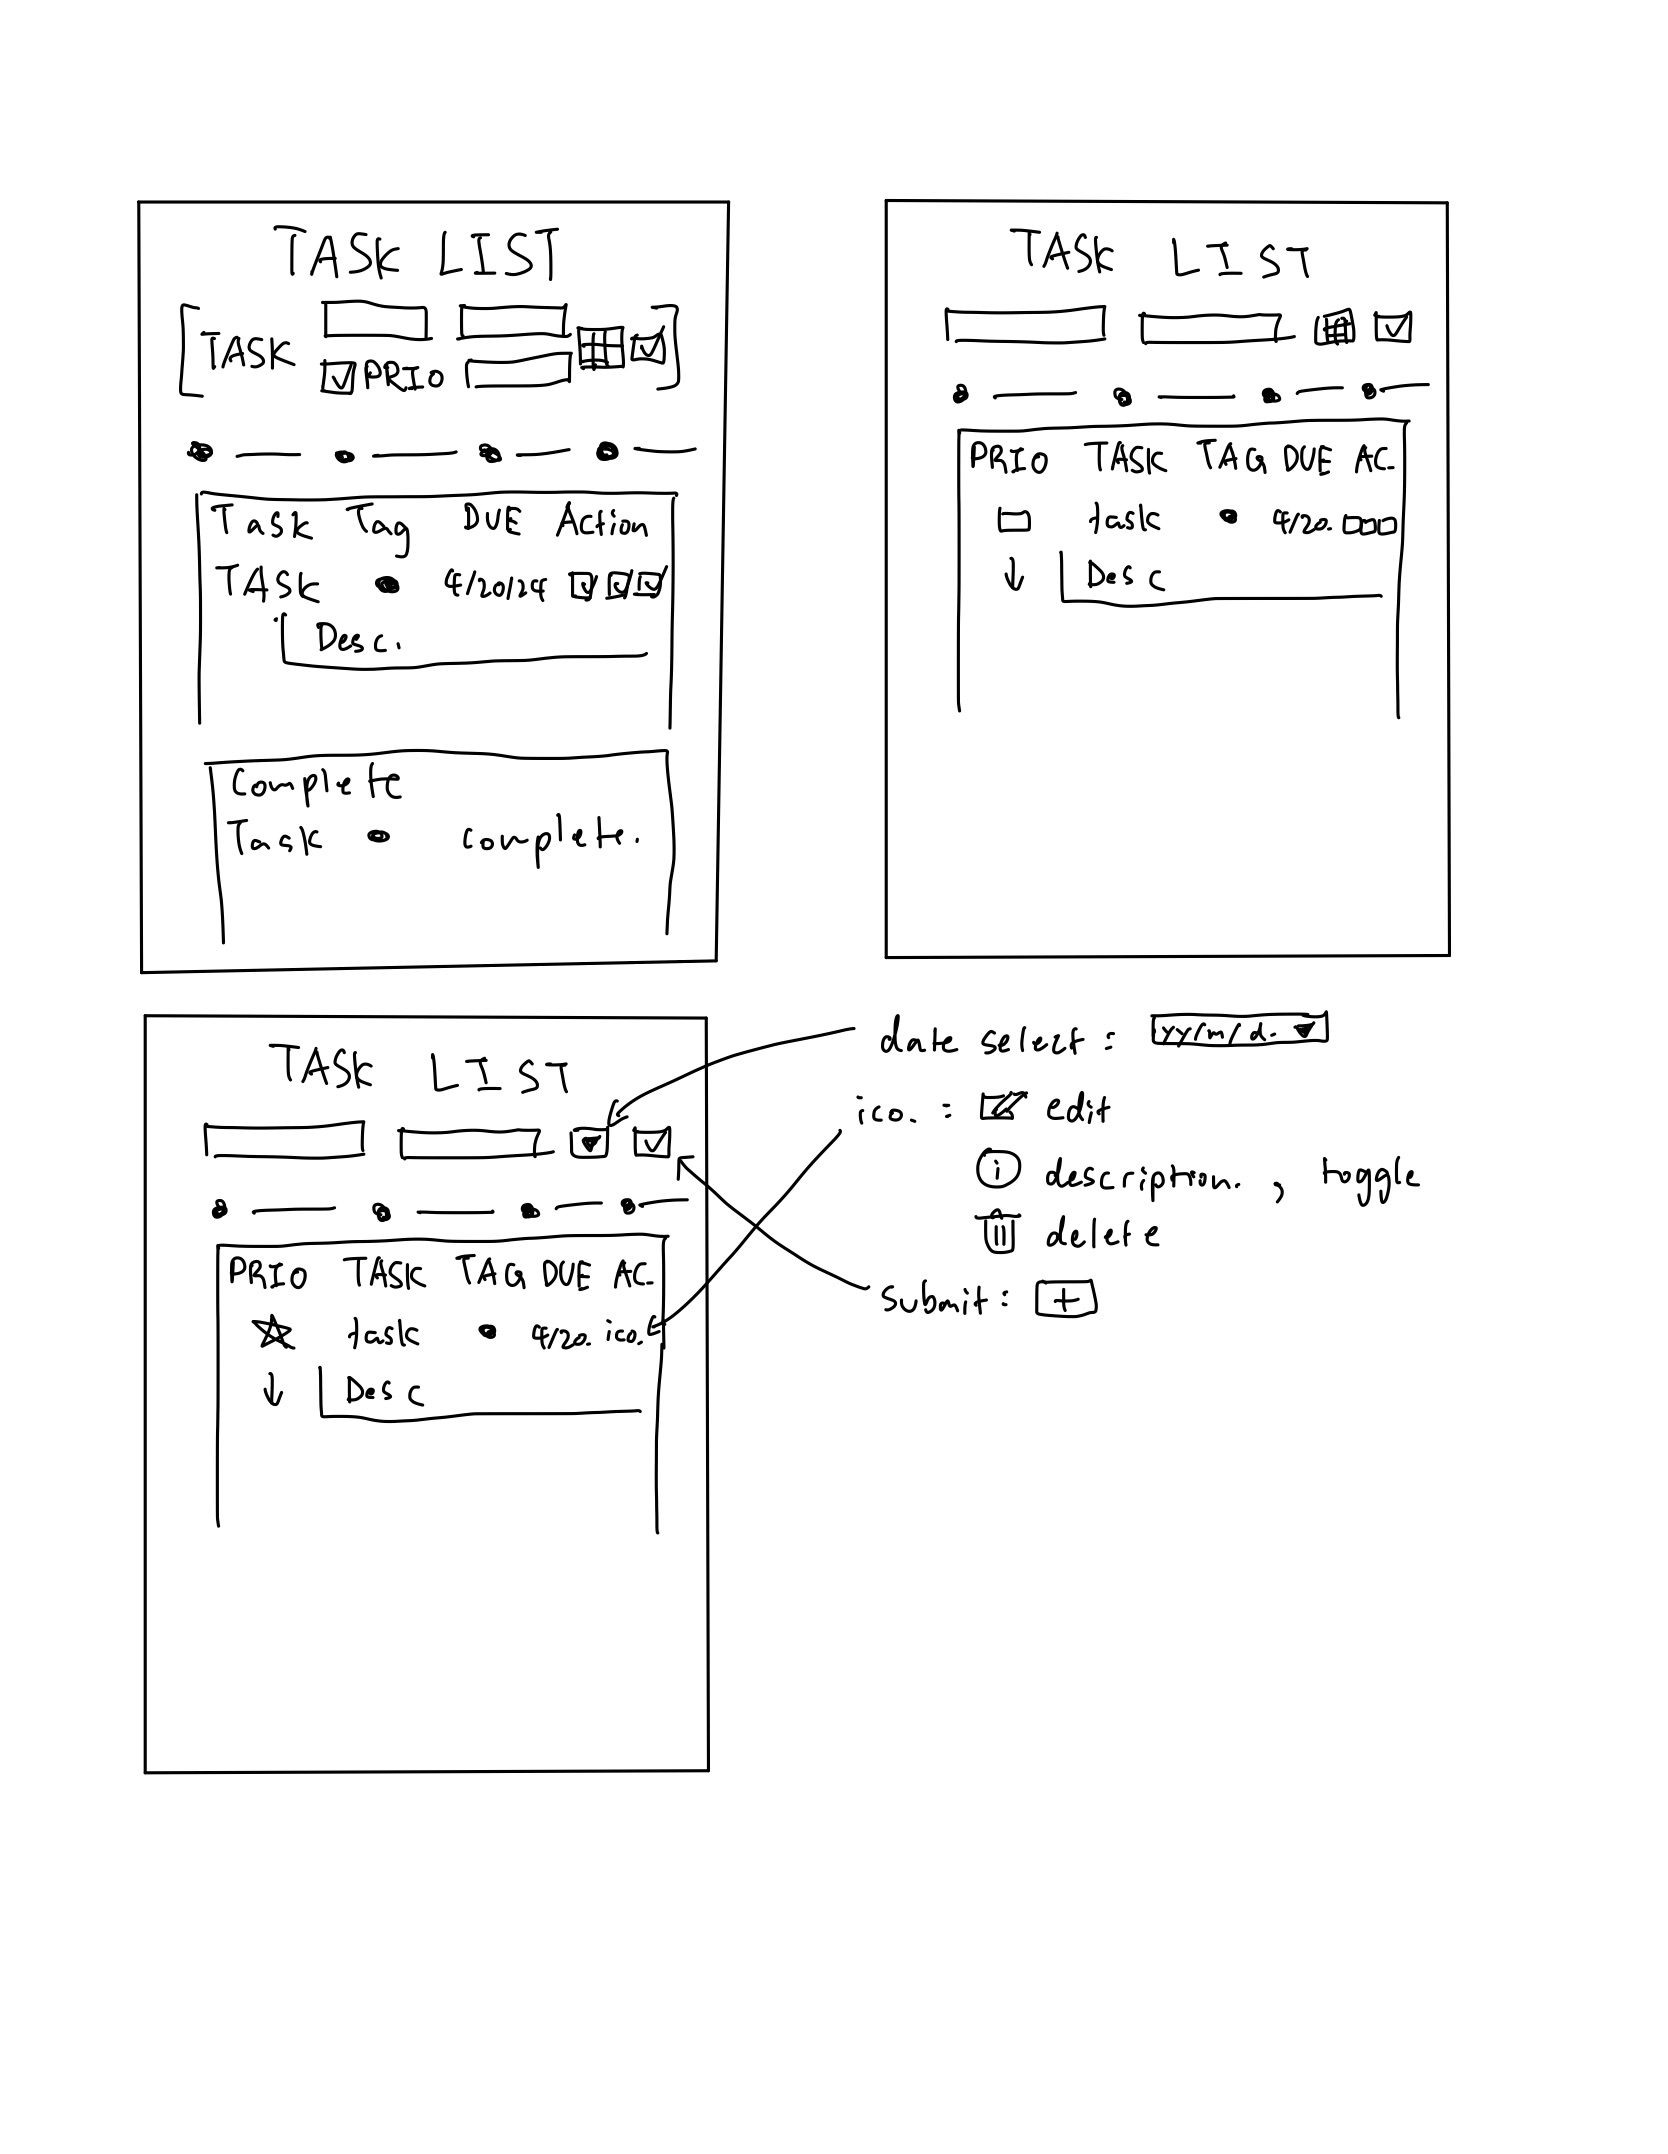 TASK LIST
TASK
PRIO
Task Tag DUE Action
TASK 4/20/24
Desc.
Complete
Task complete.
TASK LIST
PRIO TASK TAG DUE AC.
task 4/20.
Desc
TASK LIST
PRIO TASK TAG DUE AC.
task 4/20. ico.
Desc
date select: yy/m/d.
ico. = edit
i description. , toggle
delete
submit: +